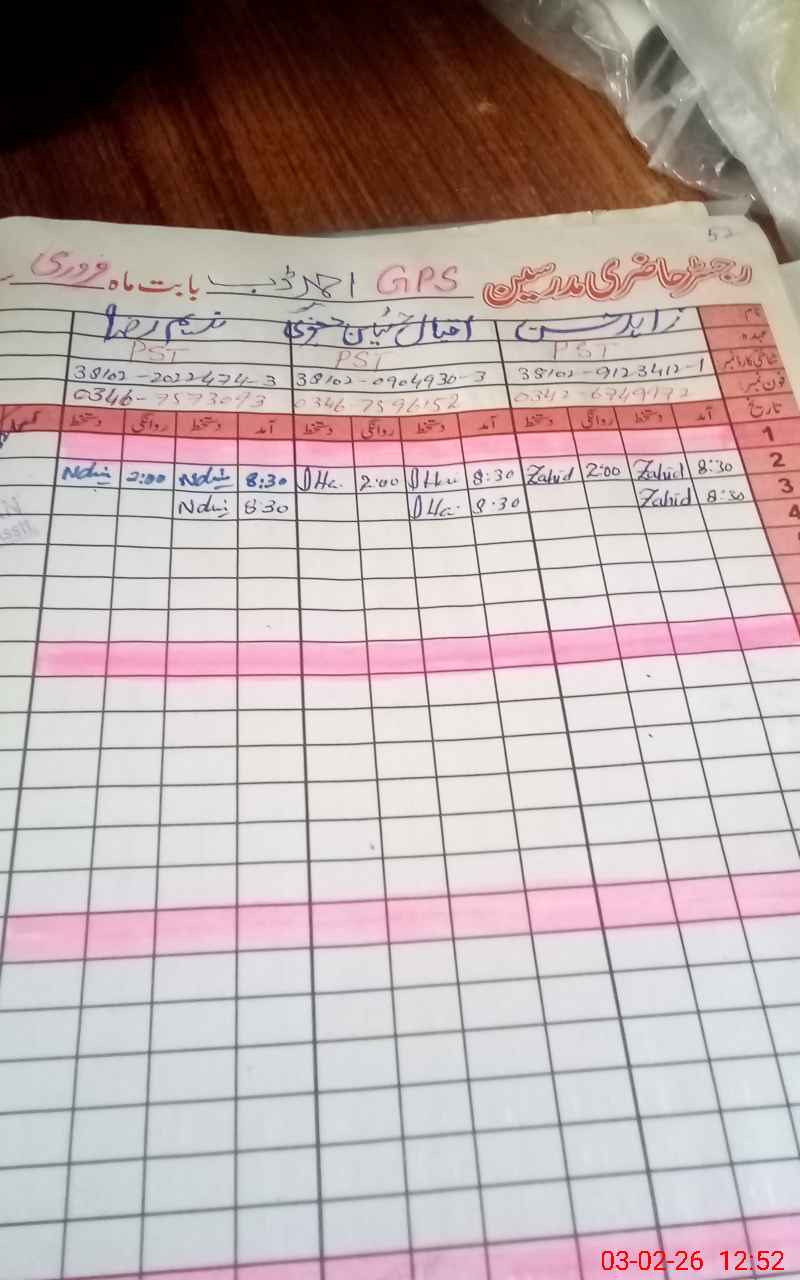 52
رجسٹر حاضری مدرسین GPS احمد ڈب بابت ماہ فروری
نام زاہد حسن اقبال حسین نسیم رضا
عہدہ PST PST PST
شناختی کارڈ نمبر 38102-9123412-1 38102-0904930-3 38102-2022474-3
فون نمبر 0342-6749972 0346-7596152 0346-7573093
تاریخ آمد دستخط روانگی دستخط آمد دستخط روانگی دستخط آمد دستخط روانگی دستخط
1
2 8:30 Zahid 2:00 Zahid 8:30 2:00 8:30 2:00
3 8:30 Zahid 8:30 8:30
4
03-02-26 12:52